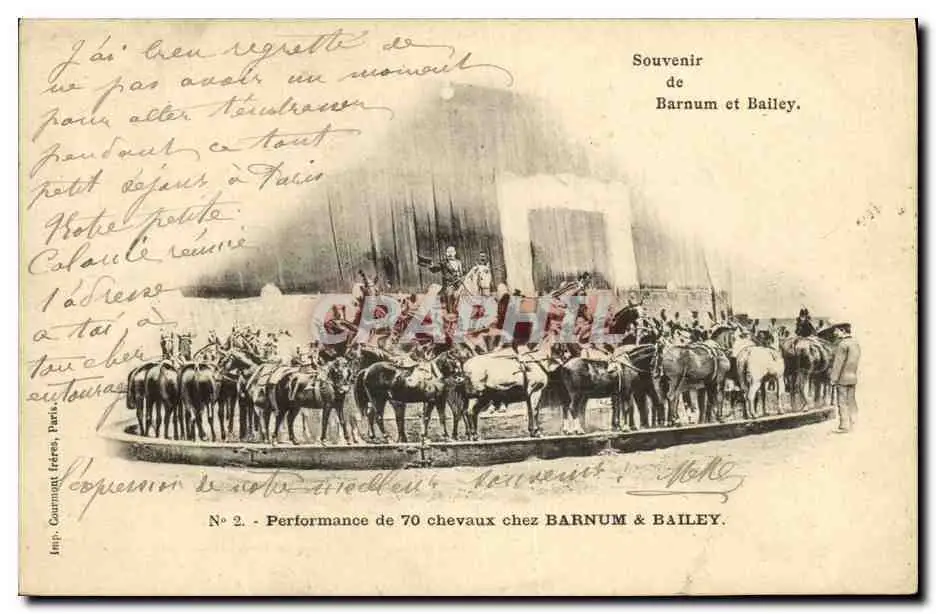 J'ai bien regretté de
ne pas avoir un moment
pour aller t'embrasser
pendant ce tout
petit séjour à Paris
Notre petite
Colonie réunie
t'adresse
a toi à
ton cher
entourage
l'expression de notre meilleur souvenir!
Souvenir
de
Barnum et Bailey.
CPAPHIL
Nº 2. - Performance de 70 chevaux chez BARNUM & BAILEY.
Imp. Courmont frères, Paris.